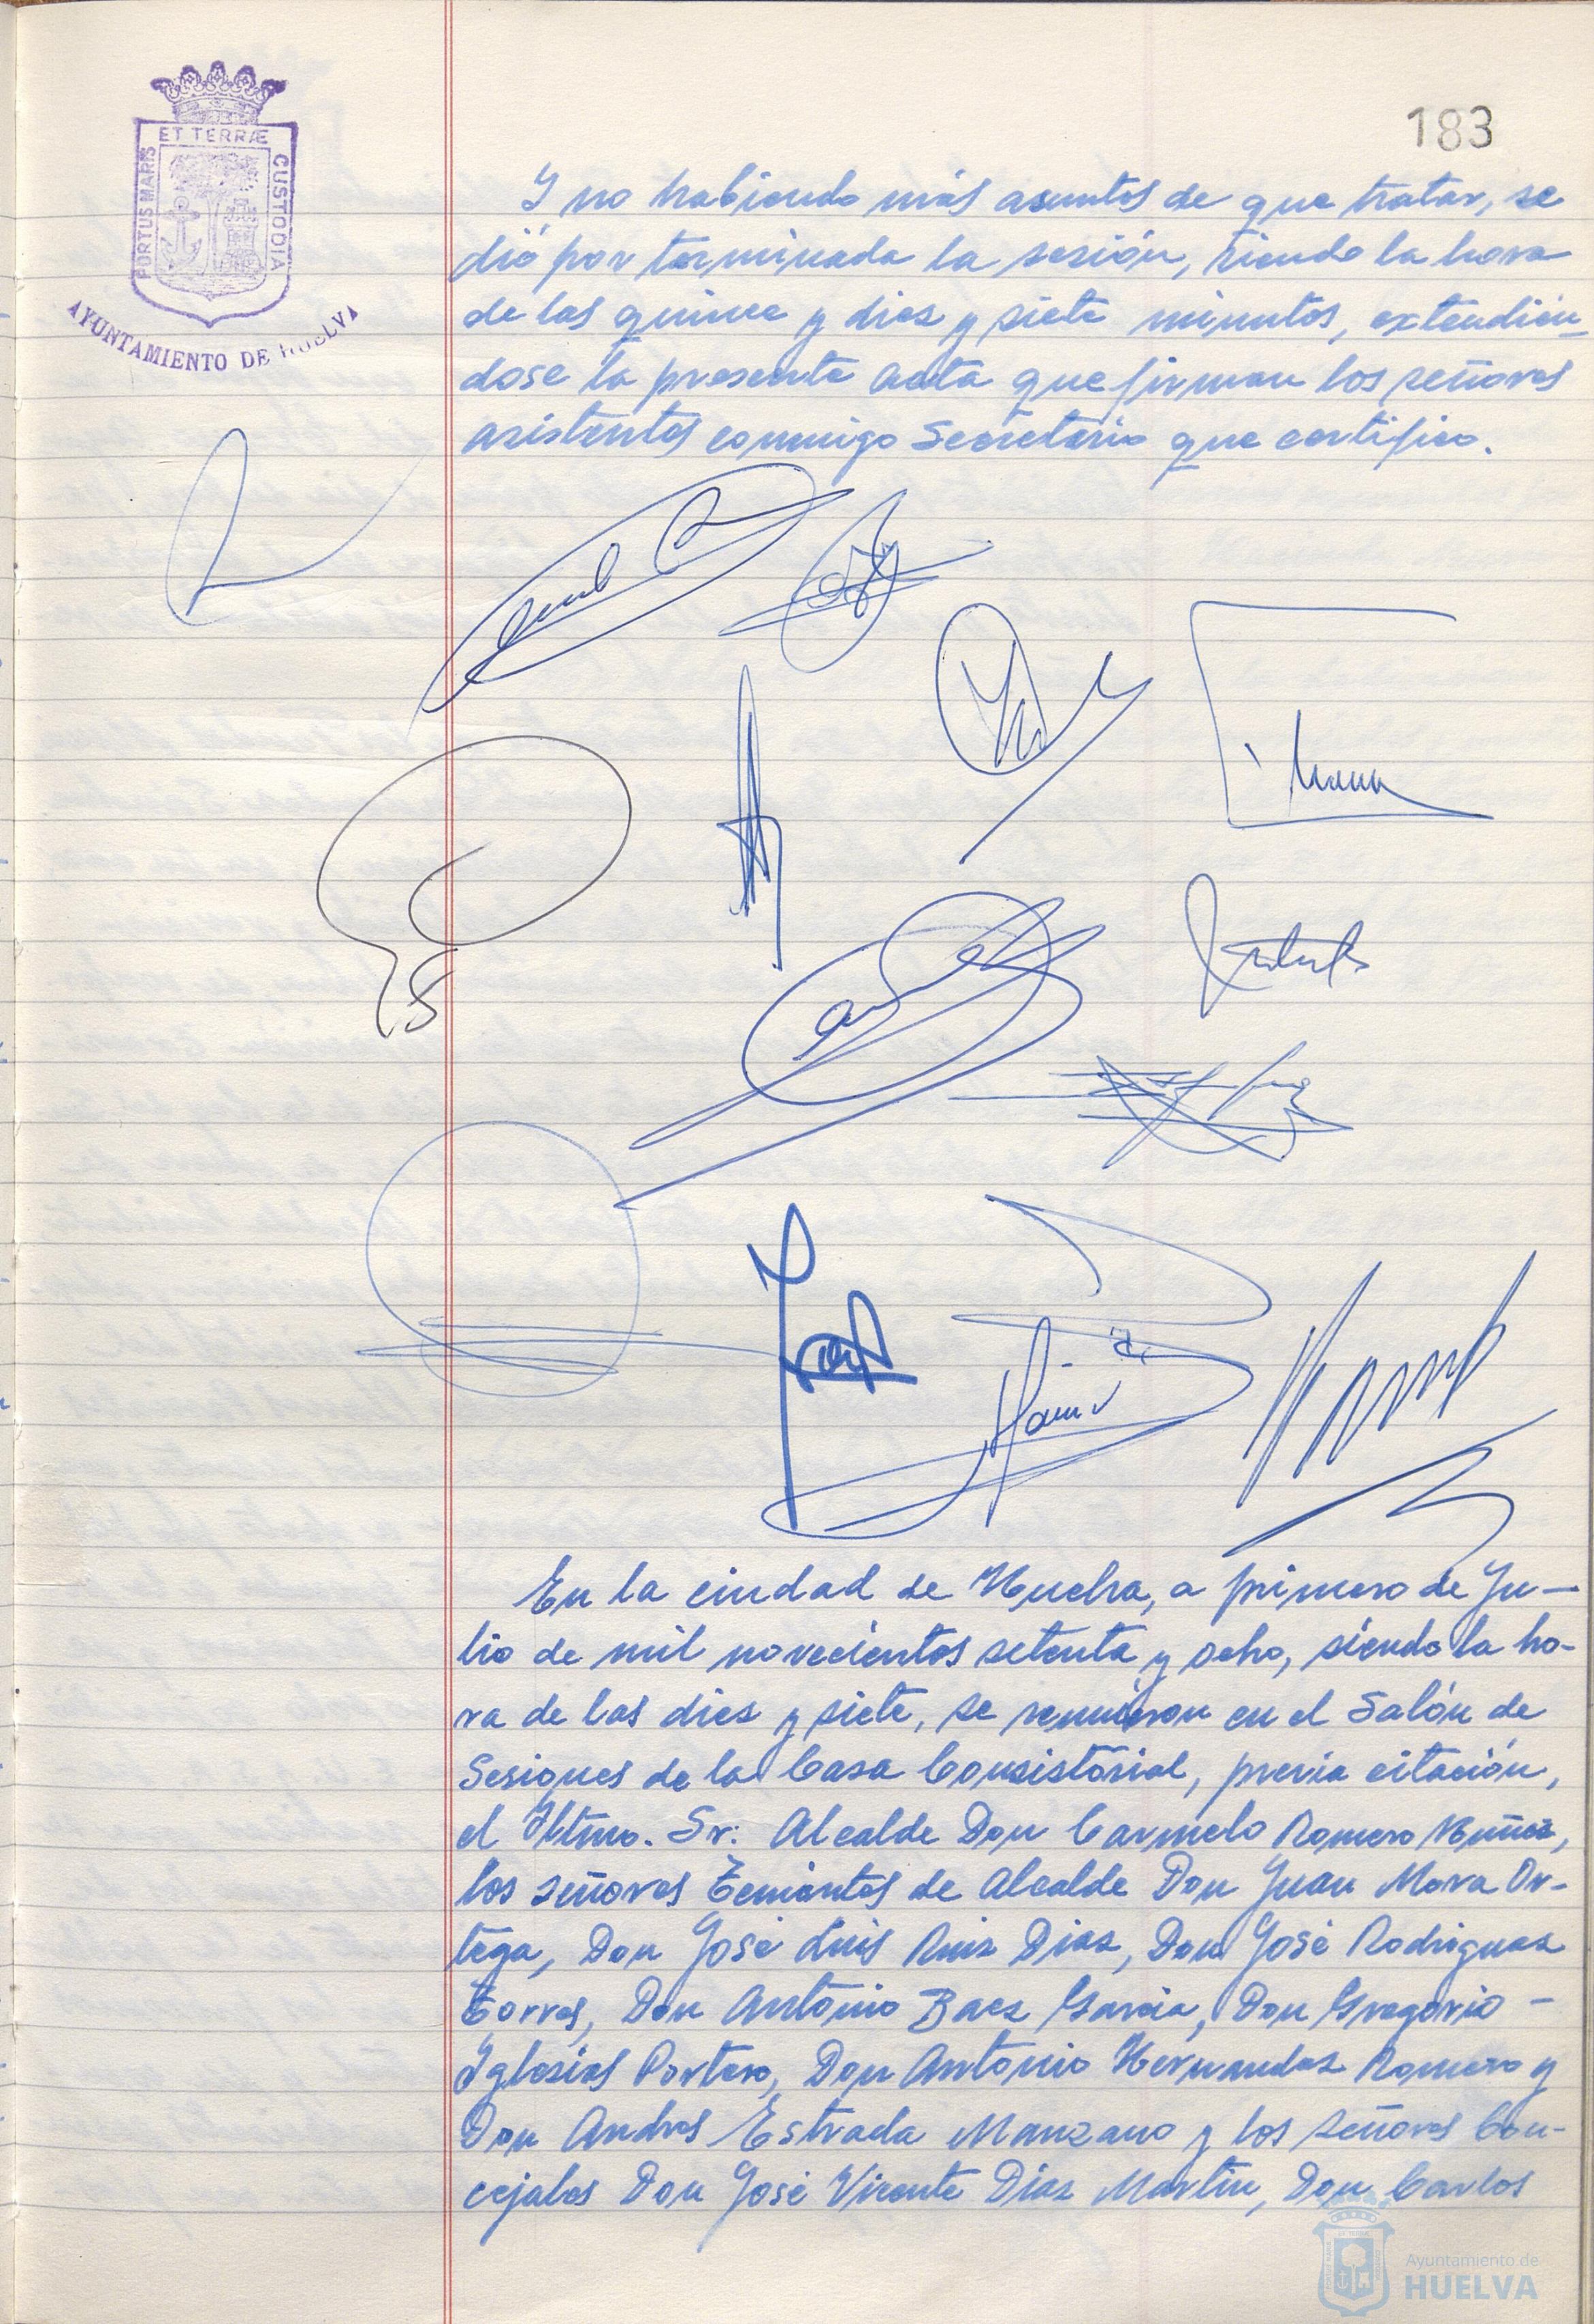 ET TERRÆ
PORTUS MARIS
CUSTODIA
AYUNTAMIENTO DE HUELVA
183
Y no habiendo más asuntos de que tratar, se
dió por terminada la sesión, siendo la hora
de las quince y diez y siete minutos, extendién
dose la presente acta que firman los señores
asistentes conmigo Secretario que certifico.
En la ciudad de Huelva, a primero de Ju-
lio de mil novecientos setenta y ocho, siendo la ho-
ra de las diez y siete, se reunieron en el Salón de
Sesiones de la Casa Consistorial, previa citación,
el Iltmo. Sr. Alcalde Don Carmelo Romero Núñez,
los señores Tenientes de Alcalde Don Juan Mora Or-
tega, Don José Luis Ruiz Diaz, Don José Rodriguez
Torres, Don Antonio Baez Garcia, Don Gregorio -
Iglesias Portero, Don Antonio Hernandez Romero y
Don Andres Estrada Manzano y los señores Con-
cejales Don José Vicente Diaz Martin, Don Carlos
Ayuntamiento de
HUELVA